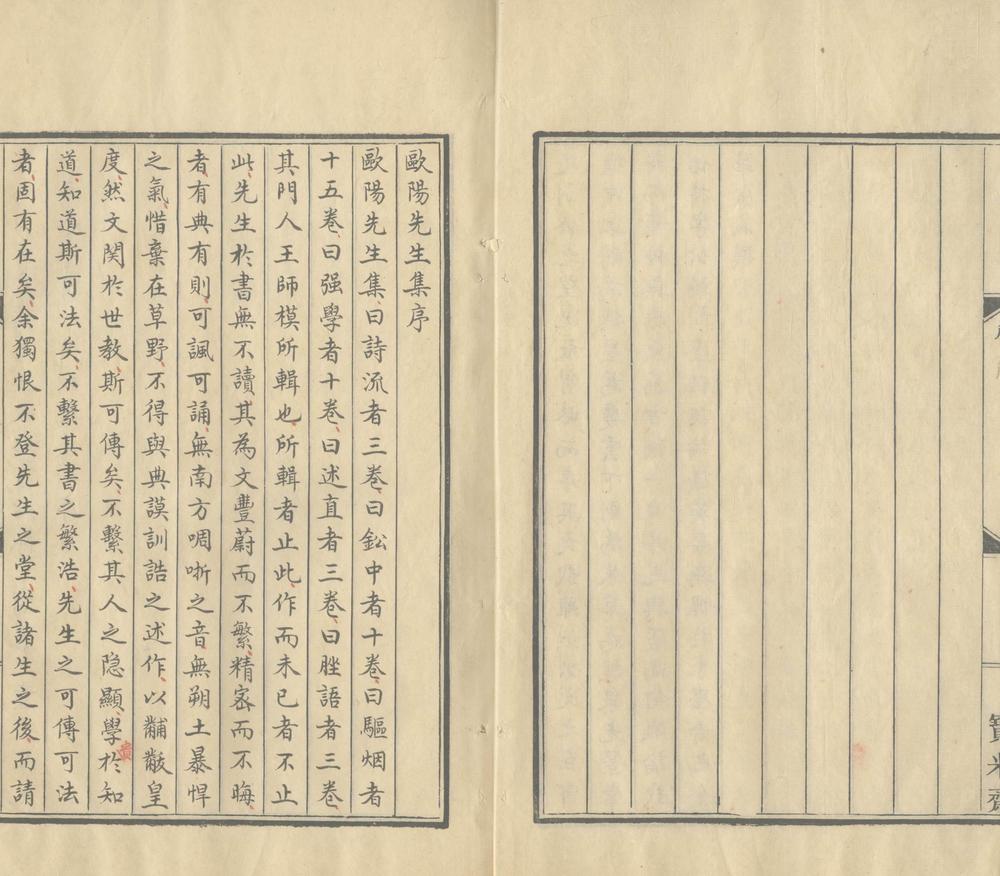 歐陽先生集序
歐陽先生集曰詩流者三卷曰鈆中者十卷曰驅烟者
十五卷曰强學者十卷曰述直者三卷曰脞語者三卷
其門人王師模所輯也所輯者止此作而未已者不止
此先生於書無不讀其為文豐蔚而不繁精宻而不晦
者有典有則可諷可誦無南方啁哳之音無朔土暴悍
之氣惜棄在草野不得與典謨訓誥之述作以黼黻皇
度然文関於世教斯可傳矣不繫其人之隐顯學於知
道知道斯可法矣不繫其書之繁浩先生之可傳可法
者固有在矣余獨恨不登先生之堂從諸生之後而請
寶米齋